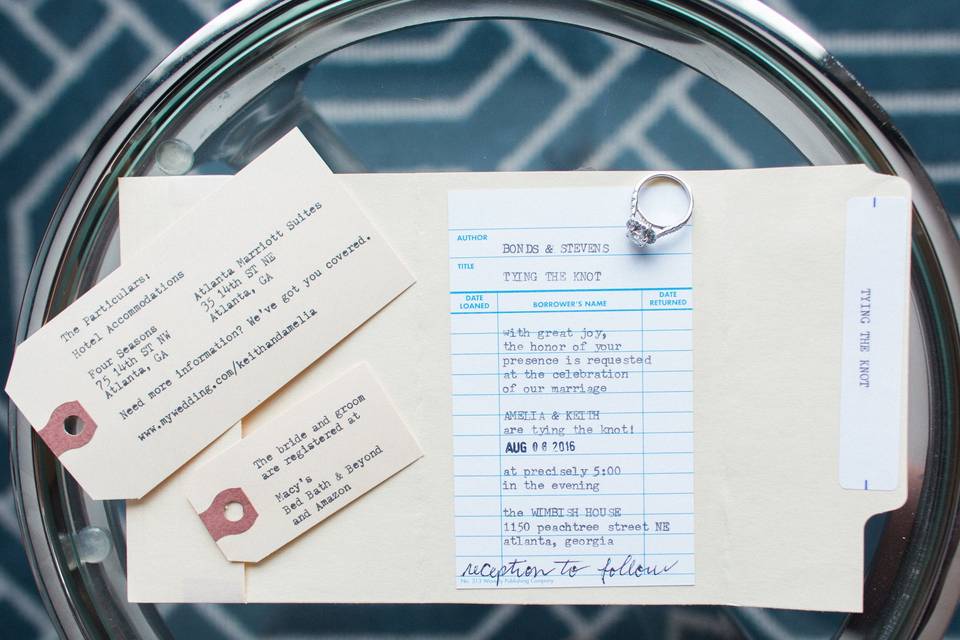 The Particulars:
Hotel Accommodations
Four Seasons
75 14th ST NW
Atlanta, GA
Atlanta Marriott Suites
35 14th ST NE
Atlanta, GA
Need more information? We've got you covered.
www.mywedding.com/keithandamelia
The bride and groom
are registered at
Macy's
Bed Bath & Beyond
and Amazon
AUTHOR BONDS & STEVENS
TITLE TYING THE KNOT
DATE LOANED BORROWER'S NAME DATE RETURNED
with great joy,
the honor of your
presence is requested
at the celebration
of our marriage
AMELIA & KEITH
are tying the knot!
AUG 06 2016
at precisely 5:00
in the evening
the WIMBISH HOUSE
1150 peachtree street NE
atlanta, georgia
reception to follow
TYING THE KNOT